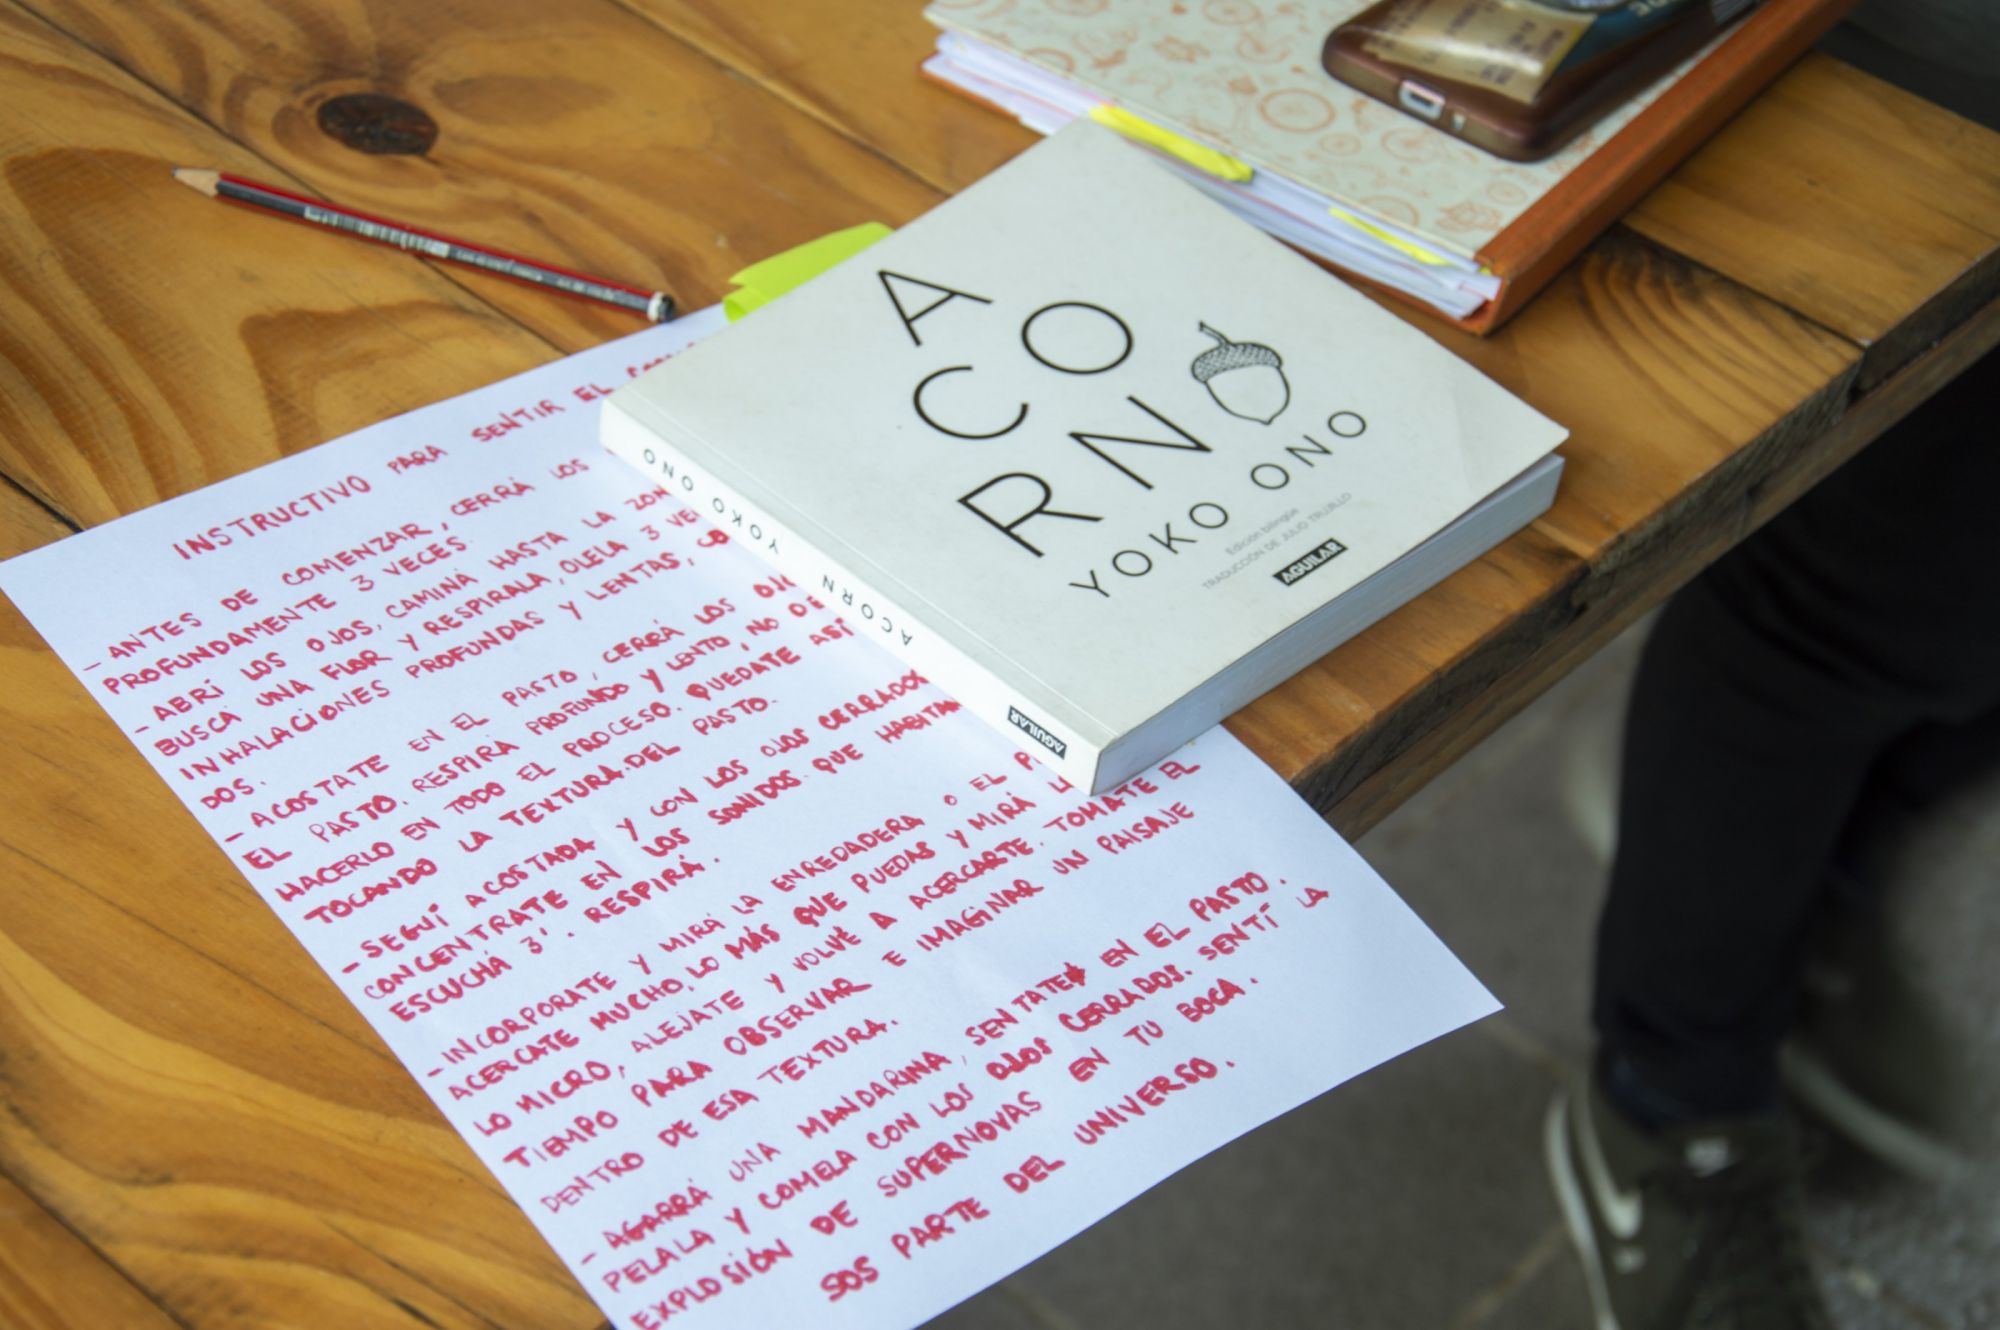 INSTRUCTIVO PARA SENTIR EL
- ANTES DE COMENZAR, CERRÁ LOS
PROFUNDAMENTE 3 VECES.
- ABRÍ LOS OJOS, CAMINÁ HASTA LA
BUSCÁ UNA FLOR Y RESPIRALA, OLELA 3
INHALACIONES PROFUNDAS Y LENTAS,
DOS.
- ACOSTATE EN EL PASTO, CERRÁ LOS
EL PASTO. RESPIRÁ PROFUNDO Y LENTO, NO
HACERLO EN TODO EL PROCESO. QUEDATE ASÍ
TOCANDO LA TEXTURA DEL PASTO.
- SEGUÍ ACOSTADA Y CON LOS OJOS CERRADOS
CONCENTRATE EN LOS SONIDOS QUE HABITAN
ESCUCHÁ 3'. RESPIRÁ.
- INCORPORATE Y MIRÁ LA ENREDADERA O EL
ACERCATE MUCHO, LO MÁS QUE PUEDAS Y MIRÁ
LO MICRO, ALEJATE Y VOLVÉ A ACERCARTE. TOMATE EL
TIEMPO PARA OBSERVAR E IMAGINAR UN PAISAJE
DENTRO DE ESA TEXTURA.
- AGARRÁ UNA MANDARINA, SENTATE EN EL PASTO.
PELALA Y COMELA CON LOS OJOS CERRADOS. SENTÍ LA
EXPLOSIÓN DE SUPERNOVAS EN TU BOCA.
SOS PARTE DEL UNIVERSO.
A
CO
RN
YOKO ONO
Edición bilingüe
TRADUCCIÓN DE JULIO TRUJILLO
AGUILAR
YOKO ONO ACORN AGUILAR